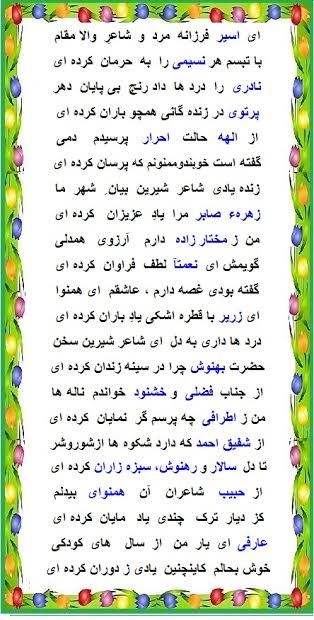 ای اسیر فرزانه مرد و شاعرِ والا مقام
با تبسم هر نسیمی را به حرمان کرده ای
نادری را درد ها داد رنج بی پایان دهر
پرتوی در زنده گانی همچو باران کرده ای
از الهه حالت احرار پرسیدم دمی
گفته است خوبندوممنونم که پرسان کرده ای
زنده یادی شاعر شیرین بیان ِ شهر ما
زهرهء صابر مرا یادِ عزیزان کرده ای
من ز مختار زاده دارم آرزوی همدلی
گویمش ای نعمتآ لطف فراوان کرده ای
گفته بودی غصه دارم ، عاشقم ای همنوا
ای زریر با قطره اشکی یادِ باران کرده ای
درد ها داری به دل ای شاعر شیرین سخن
حضرت بهنوش چرا در سینه زندان کرده ای
از جناب فضلی و خشنود خواندم ناله ها
من ز اطرافی چه پرسم گر نمایان کرده ای
از شفیق احمد که دارد شکوه ها ازشوروشر
تا دل سالار و رهنوش، سبزه زاران کرده ای
از حبیب شاعران آن همنوای بیدلم
کز دیار ترک چندی یاد مایان کرده ای
عارفی ای یار من از سال های کودکی
خوش بحالم کاینچنین یادی ز دوران کرده ای